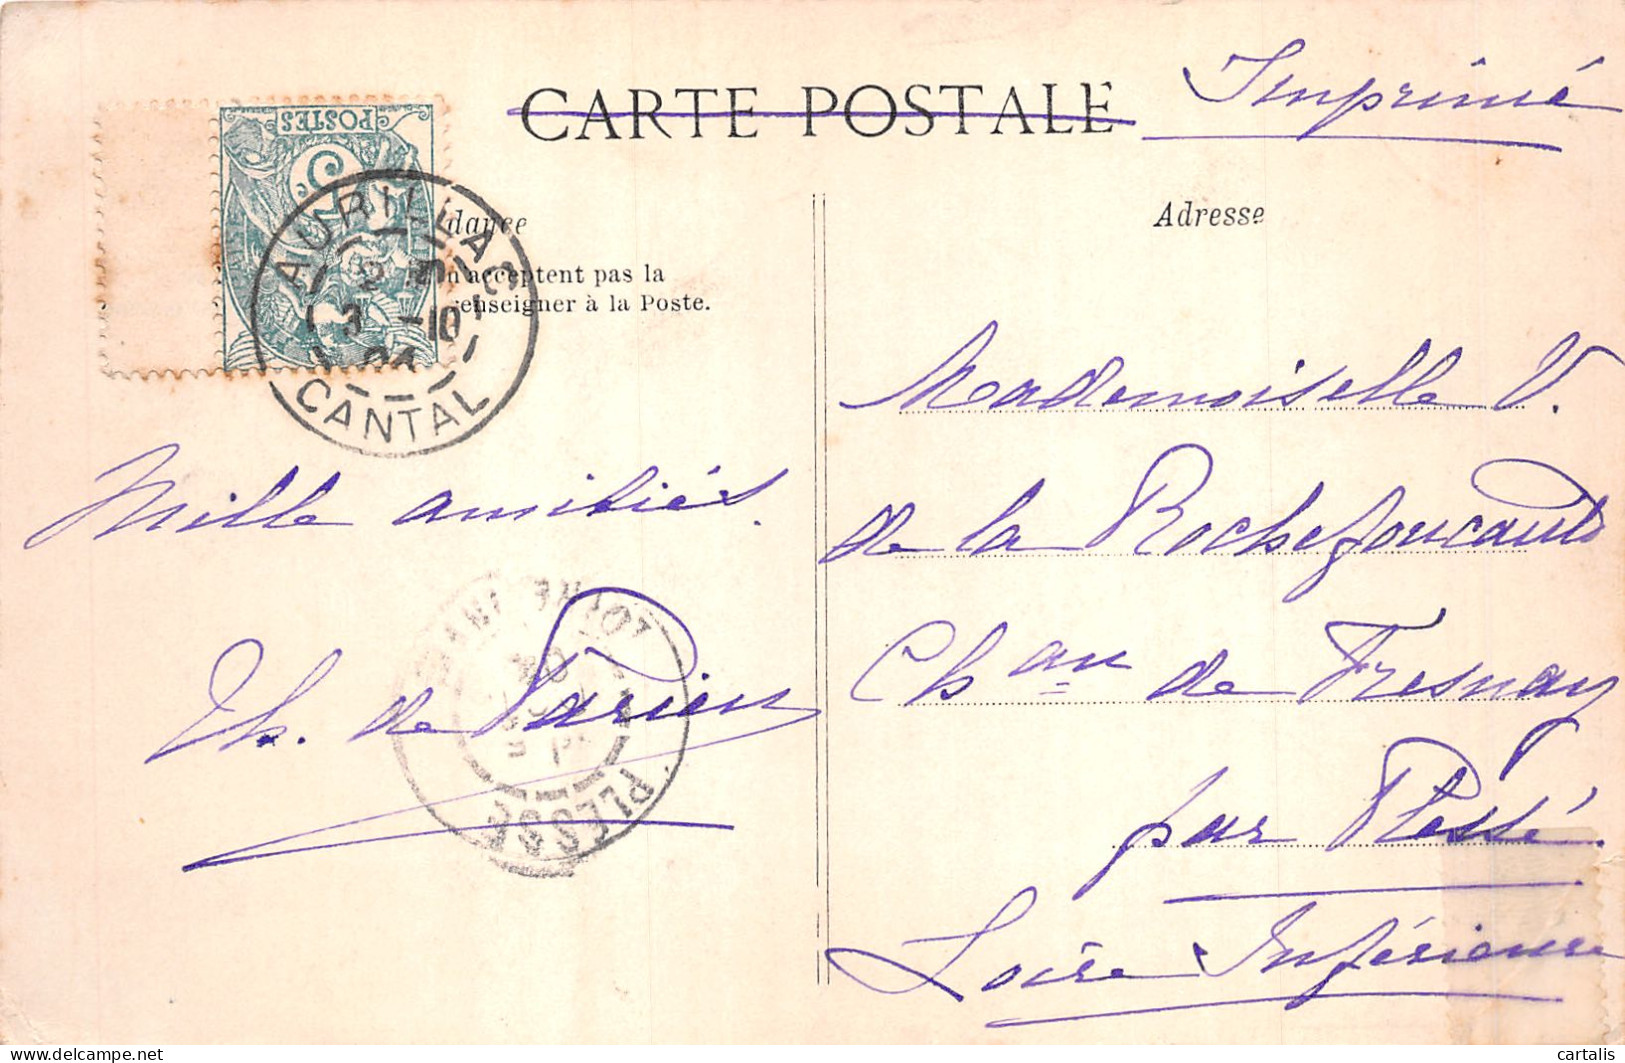 Imprimé
CARTE POSTALE
POSTES
5c
Adresse
dance
n'acceptent pas la
renseigner à la Poste.
AURILLAC
3 -10
04
CANTAL
Mademoiselle V.
de la Rochefoucauld
Chau de Fresnay
par Plessé.
Loire Inférieure
Mille amitiés.
Th. de Parieu
LOIRE INF
04
PLESSÉ
delcampe.net
cartalis